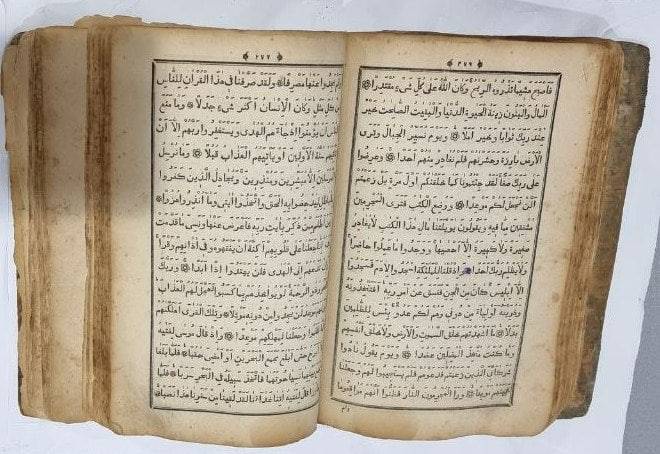 ٢٧٦
فاصبح هشيما تذروه الريح وكان الله على كل شيء مقتدرا
المال والبنون زينة الحيوة الدنيا والبقيت الصلحت خير
عند ربك ثوابا وخير املا ويوم نسير الجبال وترى
الارض بارزة وحشرنهم فلم نغادر منهم احدا وعرضوا
على ربك صفا لقد جئتمونا كما خلقنكم اول مرة بل زعمتم
الن نجعل لكم موعدا ووضع الكتب فترى المجرمين
مشفقين مما فيه ويقولون يويلتنا مال هذا الكتب لا يغادر
صغيرة ولا كبيرة الا احصيها ووجدوا ما عملوا حاضرا
ولا يظلم ربك احدا واذ قلنا للملئكة اسجدوا لادم فسجدوا
الا ابليس كان من الجن ففسق عن امر ربه افتتخذونه
وذريته اولياء من دوني وهم لكم عدو بئس للظلمين
بدلا ما اشهدتهم خلق السموت والارض ولا خلق انفسهم
وما كنت متخذ المضلين عضدا ويوم يقول نادوا
شركاءي الذين زعمتم فدعوهم فلم يستجيبوا لهم وجعلنا
بينهم موبقا ورا المجرمون النار فظنوا انهم مواقعوها
٢٧٧
ولم يجدوا عنها مصرفا ولقد صرفنا في هذا القران للناس
من كل مثل وكان الانسان اكثر شيء جدلا وما منع
الناس ان يؤمنوا اذ جاءهم الهدى ويستغفروا ربهم الا ان
تاتيهم سنة الاولين او ياتيهم العذاب قبلا وما نرسل
المرسلين الا مبشرين ومنذرين ويجادل الذين كفروا
بالباطل ليدحضوا به الحق واتخذوا ايتي وما انذروا هزوا
اظلم ممن ذكر بايت ربه فاعرض عنها ونسي ما قدمت
انا جعلنا على قلوبهم اكنة ان يفقهوه وفي اذانهم وقرا
تدعهم الى الهدى فلن يهتدوا اذا ابدا وربك
الغفور ذو الرحمة لو يؤاخذهم بما كسبوا لعجل لهم العذاب
موعد لن يجدوا من دونه موئلا وتلك القرى اهلكنهم
ظلموا وجعلنا لمهلكهم موعدا واذ قال موسى لفتيه
ابرح حتى ابلغ مجمع البحرين او امضي حقبا فلما بلغا
بينهما نسيا حوتهما فاتخذ سبيله في البحر سربا فلما
قال لفتيه اتنا غداءنا لقد لقينا من سفرنا هذا نصبا